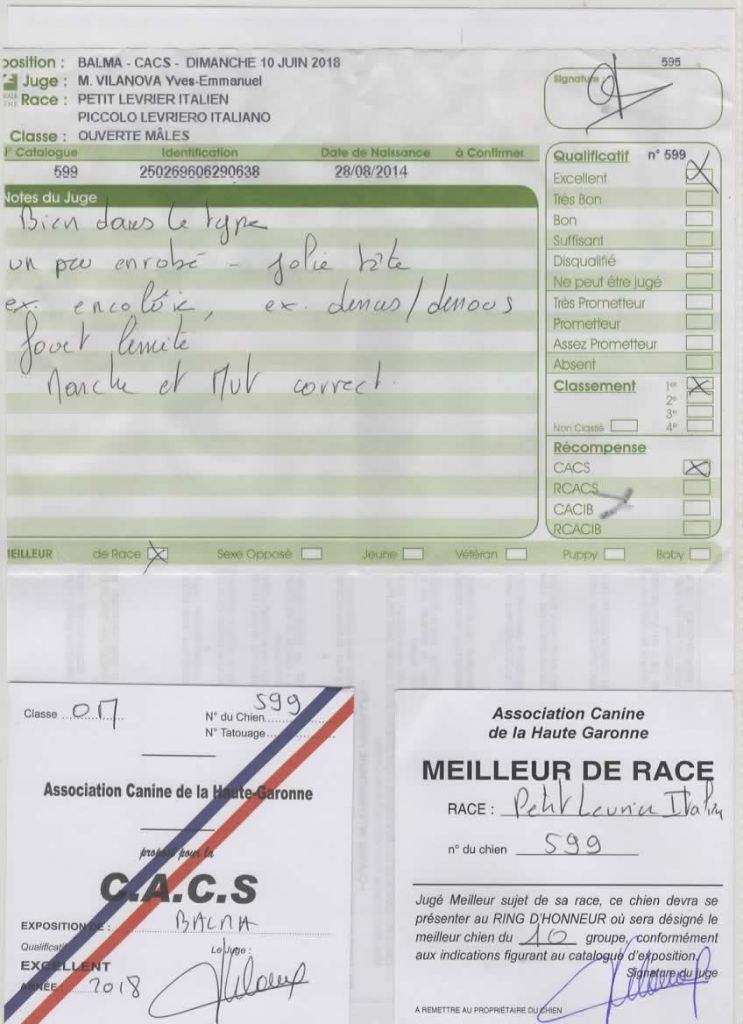 position : BALMA - CACS - DIMANCHE 10 JUIN 2018
Juge : M. VILANOVA Yves-Emmanuel
Race : PETIT LEVRIER ITALIEN
PICCOLO LEVRIERO ITALIANO
Classe : OUVERTE MÂLES
595
Signature :
N° Catalogue Identification Date de Naissance à Confirmer
599 250269606290638 28/08/2014
Notes du Juge
Bien dans le type
un peu enrobé - jolie tête
ex. encolure, ex. dessus/dessous
fouet limite
Marche et Mvt correct.
Qualificatif n° 599
Excellent
Très Bon
Bon
Suffisant
Disqualifié
Ne peut être jugé
Très Prometteur
Prometteur
Assez Prometteur
Absent
Classement 1er
2e
3e
Non Classé 4e
Récompense
CACS
RCACS
CACIB
RCACIB
MEILLEUR de Race Sexe Opposé Jeune Vétéran Puppy Baby
Classe OM
N° du Chien 599
N° Tatouage
Association Canine de la Haute-Garonne
proposé pour le
C.A.C.S
EXPOSITION DE : BALMA
Qualificatif
Le Juge :
EXCELLENT
ANNÉE : 2018
Association Canine
de la Haute Garonne
MEILLEUR DE RACE
RACE : Petit Levrier Italien
n° du chien 599
Jugé Meilleur sujet de sa race, ce chien devra se
présenter au RING D'HONNEUR où sera désigné le
meilleur chien du 10 groupe, conformément
aux indications figurant au catalogue d'exposition.
Signature du juge
A REMETTRE AU PROPRIÉTAIRE DU CHIEN